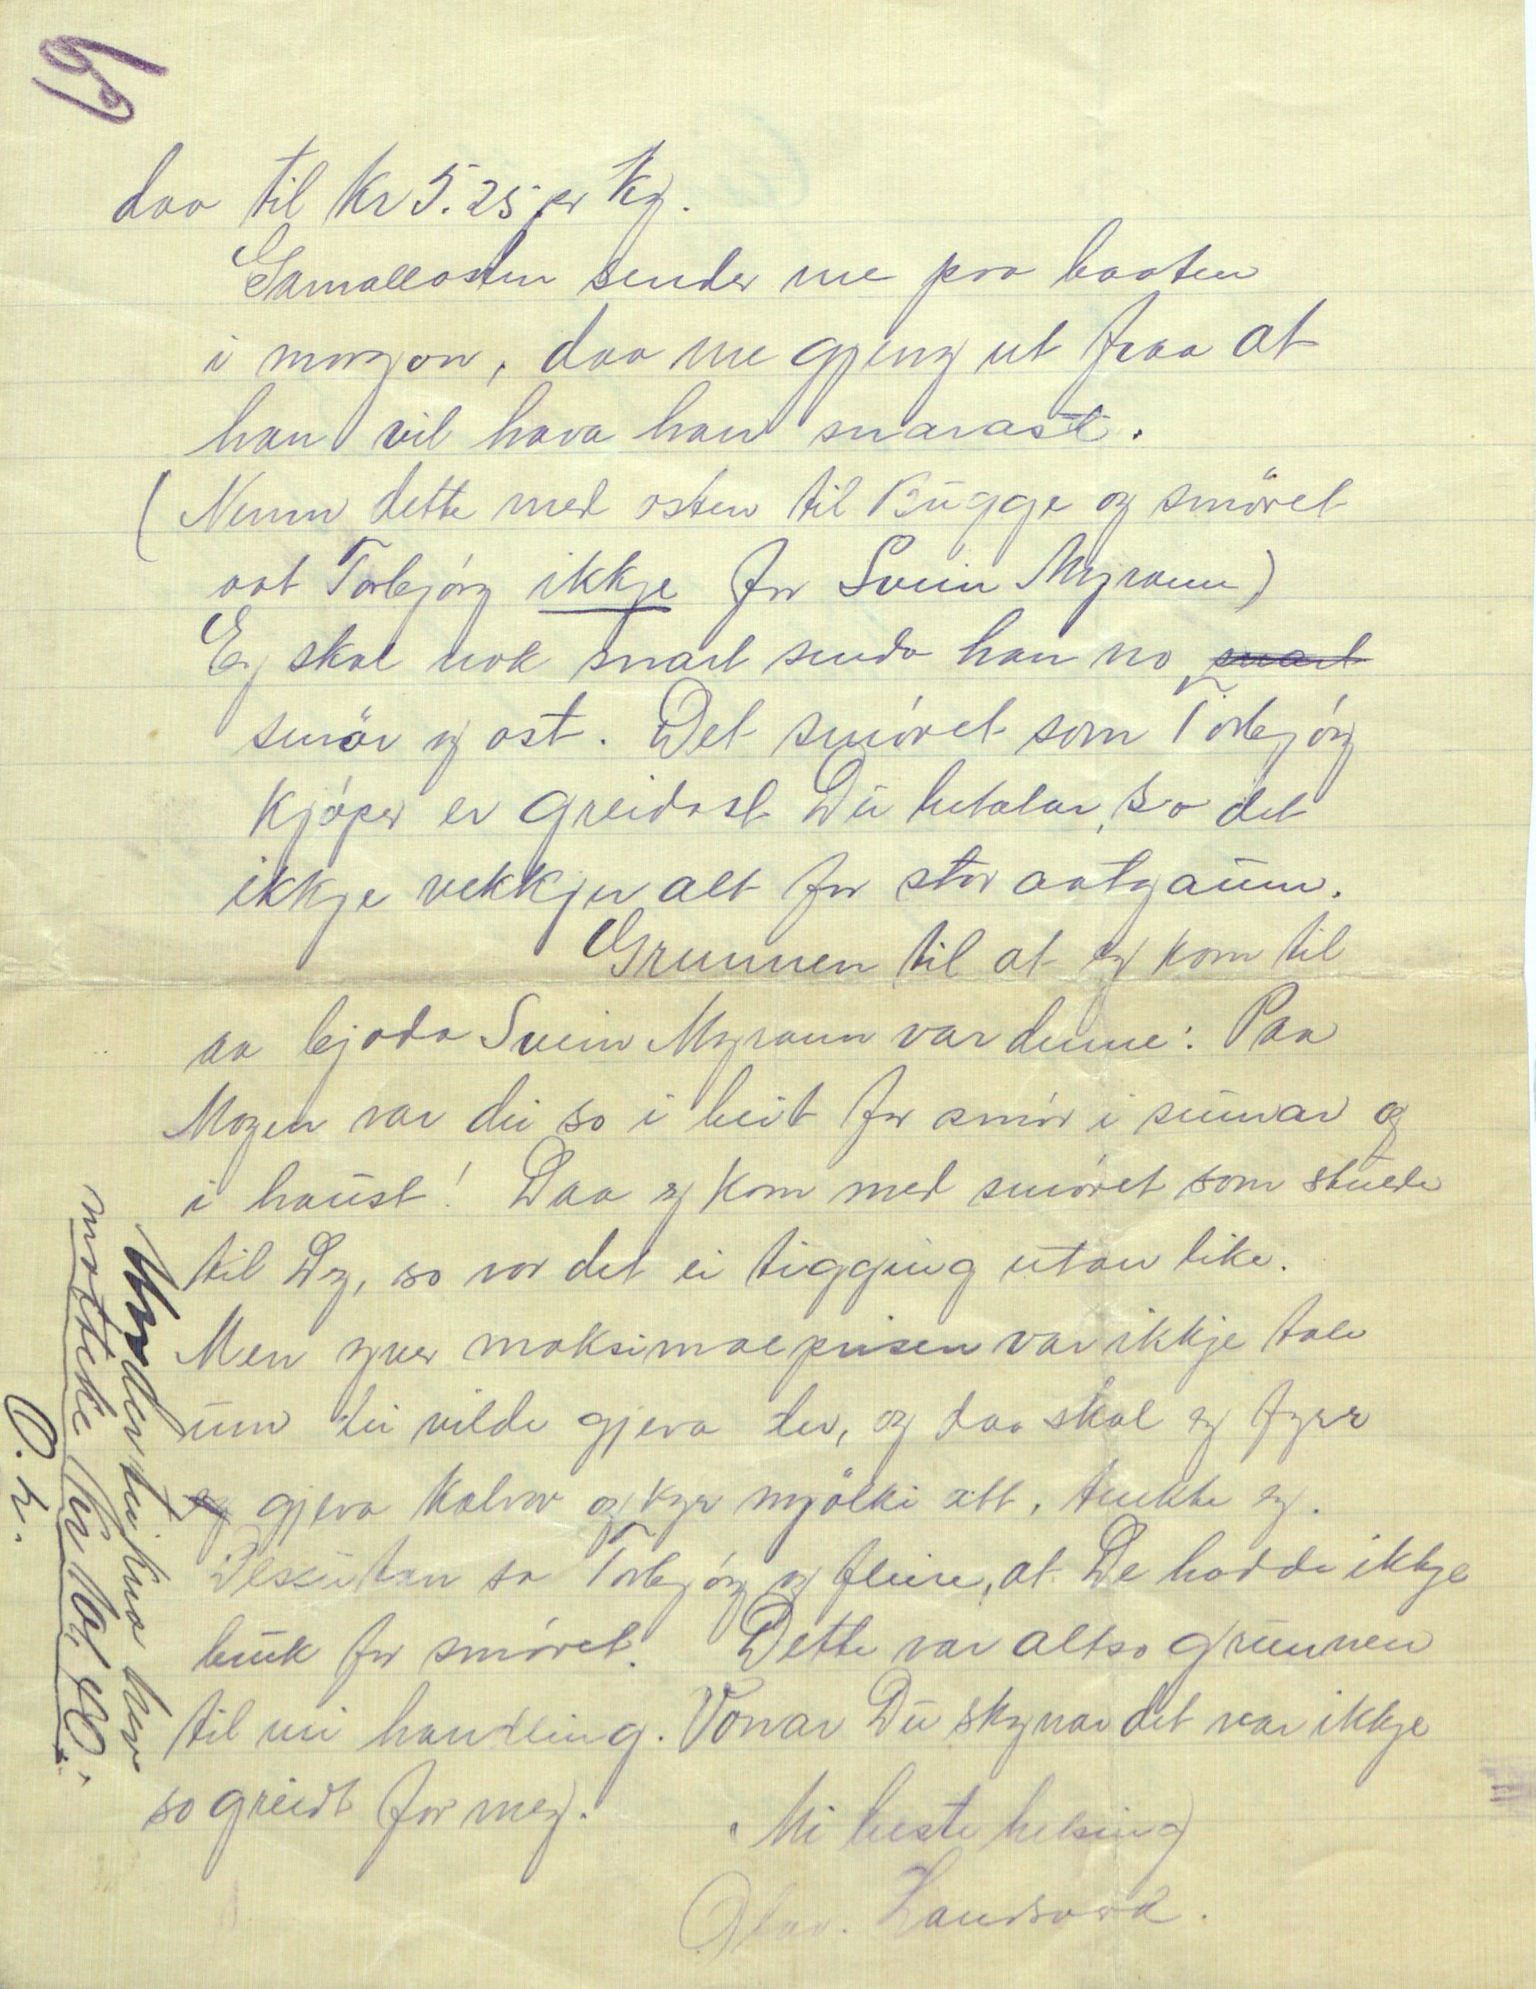 daa til Kr 5.25 pr Kg.
Gamallosten sender me paa baaten
i morgon, daa me gjeng ut fraa at
han vil hava han snarast.
(Nemn dette med osten til Bugge og smöret
aat Torbjörg ikkje for Svein Myraun)
Eg skal nok snart senda han no snart
smör og ost. Det smöret som Torbjörg
kjöper er greidast Du betalar, so det
ikkje vekkjer alt for stor aatgaum.
Grunnen til at eg kom til
aa bjoda Svein Myraun var denne: Paa
Mogen var dei so i beit for smör i sumar og
i haust! Daa eg kom med smöret som skulde
til Dg, so var det ei tigging utan like.
Men yver maksimalprisen var ikkje tale
um dei vilde gjeva der, og daa skal eg fyrr
eg gjeva kalvar og kyr mjölki att, tenkte eg.
Dessutan sa Torbjörg og fleire, at De hadde ikkje
bruk for smöret. Dette var altso grunnen
til mi handling. Vonar Du skynar det var ikkje
so greidt for meg.
Mi beste helsing
Olav. Landsverk.
O. L.